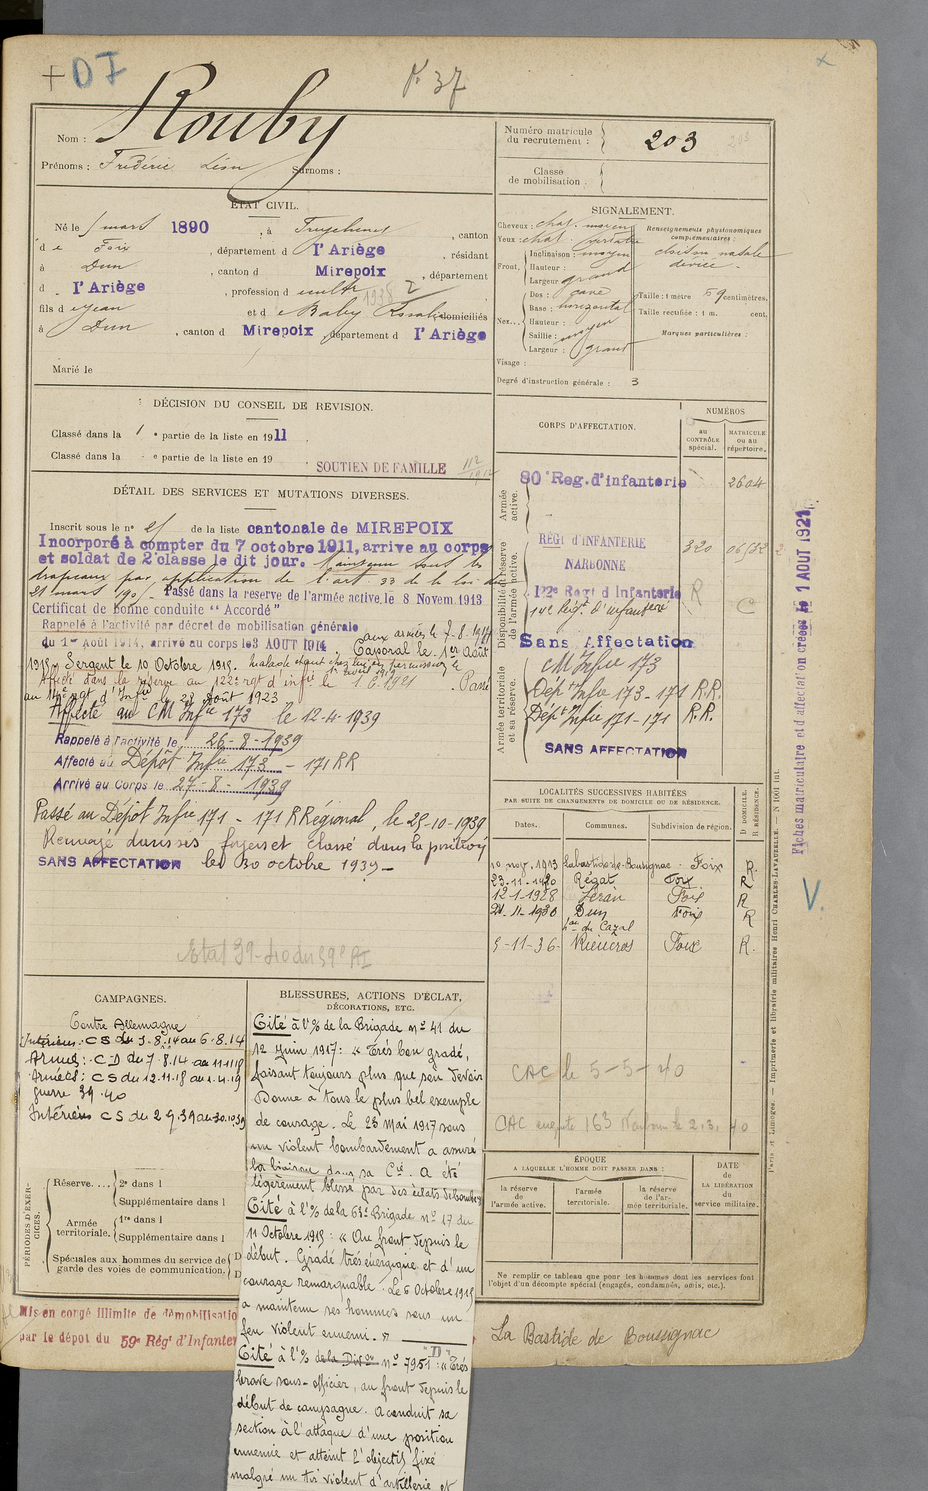 + DF
P. 37
Nom : Rouby
Prénoms : Frédéric Léon Surnoms :
Numéro matricule du recrutement : 203
Classe de mobilisation :
ÉTAT CIVIL.
Né le 1 mars 1890, à, canton
de Foix, département de l'Ariège, résidant
à Dun, canton d Mirepoix, département
d l'Ariège, profession de cultr
fils de Jean et de Baby Rosalie domiciliés
à Dun, canton d Mirepoix, département d l'Ariège
Marié le
SIGNALEMENT.
Cheveux : chat. moyen
Yeux : chat.
Front. Inclinaison : moyen
Hauteur :
Largeur : grand
Nez... Dos : cave
Base : horizontal
Hauteur :
Saillie : moyen
Largeur : grand
Visage :
Degré d'instruction générale : 3
Renseignements physionomiques complémentaires :
cloison nasale
déviée -
Taille : 1 mètre 59 centimètres.
Taille rectifiée : 1 m. cent.
Marques particulières :
DÉCISION DU CONSEIL DE REVISION.
Classé dans la 1 e partie de la liste en 1911.
Classé dans la e partie de la liste en 19 .
SOUTIEN DE FAMILLE
DÉTAIL DES SERVICES ET MUTATIONS DIVERSES.
Inscrit sous le n° 25 de la liste cantonale de MIREPOIX
Incorporé à compter du 7 octobre 1911, arrive au corps
et soldat de 2e classe le dit jour. Maintenu sous les
drapeaux par application de l'art 33 de la loi du
21 mars 190 Passé dans la reserve de l'armée active, le 8 Novem. 1913
Certificat de bonne conduite "Accordé"
Rappelé à l'activité par décret de mobilisation générale
du 1er Août 1914, arrivé au corps le 3 AOUT 1914. aux armées le 7-8-1914
Caporal le 1er Août
1915. Sergent le 10 Octobre 1915.
Affecté dans la réserve au 122e rgt d'infie le 1-6-1921. Passé
au 14e rgt d'Infie le 23 Août 1923
Affecté au CM Infie 173 le 12-4-1939
Rappelé à l'activité le 26-8-1939
Affecté au Dépôt Infie 173 - 171 RR
Arrivé au Corps le 27-8-1939
Passé au Dépôt Infie 171 - 171 R Régional, le 25-10-1939
Renvoyé dans ses foyers et classé dans la position
SANS AFFECTATION le 30 octobre 1939 -
Etat 39-40 du 59e RI
CORPS D'AFFECTATION.
NUMÉROS
au CONTRÔLE spécial.
MATRICULE ou au répertoire.
Armée active.
80e Reg. d'infanterie 2604
Disponibilité et réserve de l'armée active.
REGt d'INFANTERIE 320
NARBONNE
122e Regt d'Infanterie R
14e Régt d'infanterie
Sans Affectation
Armée territoriale et sa réserve.
CM Infie 173
Dépt Infie 173 - 171 R.R.
Dépt Infie 171-171 R.R.
SANS AFFECTATION
LOCALITÉS SUCCESSIVES HABITÉES
PAR SUITE DE CHANGEMENTS DE DOMICILE OU DE RÉSIDENCE.
Dates. Communes. Subdivision de région. D DOMICILE. R RÉSIDENCE.
10 nov. 1913 Labastide-de-Bousignac - Foix R.
23-11-1920 Régat Foix R
12-1-1928 Léran Foix R
21-11-1930 Dun Foix R
du Cazal
5-11-36 Rieucros Foix R.
CAC le 5-5-40
CAC 163 Narbonne le 2.3.40
ÉPOQUE
A LAQUELLE L'HOMME DOIT PASSER DANS :
la réserve de l'armée active.
l'armée territoriale.
la réserve de l'armée territoriale.
DATE DE LA LIBÉRATION du service militaire.
Ne remplir ce tableau que pour les hommes dont les services font
l'objet d'un décompte spécial (engagés, condamnés, omis, etc.).
La Bastide de Bousignac
Fiches matriculaire et d'affectation créées le 1 AOUT 1921.
V.
Paris et Limoges. — Imprimerie et librairie militaires Henri CHARLES-LAVAUZELLE.
CAMPAGNES.
Contre Allemagne
Intérieur : CS du 3.8.14 au 6.8.14
Armées : CD du 7.8.14 au 11.11.18
Armées : CS du 12.11.18 au 1.4.19
guerre 39.40
Intérieur CS du 2.9.39 au 30.10.39
PÉRIODES D'EXERCICES.
Réserve.... 2e dans l
Supplémentaire dans l
Armée territoriale. 1re dans l
Supplémentaire dans l
Spéciales aux hommes du service de
garde des voies de communication.
Mis en congé illimité de démobilisatio
par le dépot du 59e Régt d'Infanter
BLESSURES, ACTIONS D'ÉCLAT,
DÉCORATIONS, ETC.
Cité à l'% de la Brigade n° 41 du
12 Juin 1917 : « Très bon gradé,
faisant toujours plus que son devoir
Donne à tous le plus bel exemple
de courage. Le 23 Mai 1917 sous
un violent bombardement a assuré
la liaison dans sa Cie. A été
légèrement blessé par des éclats de bombes
Cité à l'% de la 63e Brigade n° 17 du
11 Octobre 1915 : « Au front depuis le
début. Gradé très énergique et d'un
courage remarquable. Le 6 Octobre 1915
a maintenu ses hommes sous un
feu violent ennemi. »
Cité à l'% de la Dion n° 7951 : « Très
brave sous-officier, au front depuis le
début de campagne. A conduit sa
section à l'attaque d'une position
ennemie et atteint l'objectif fixé
malgré un tir violent d'artillerie et